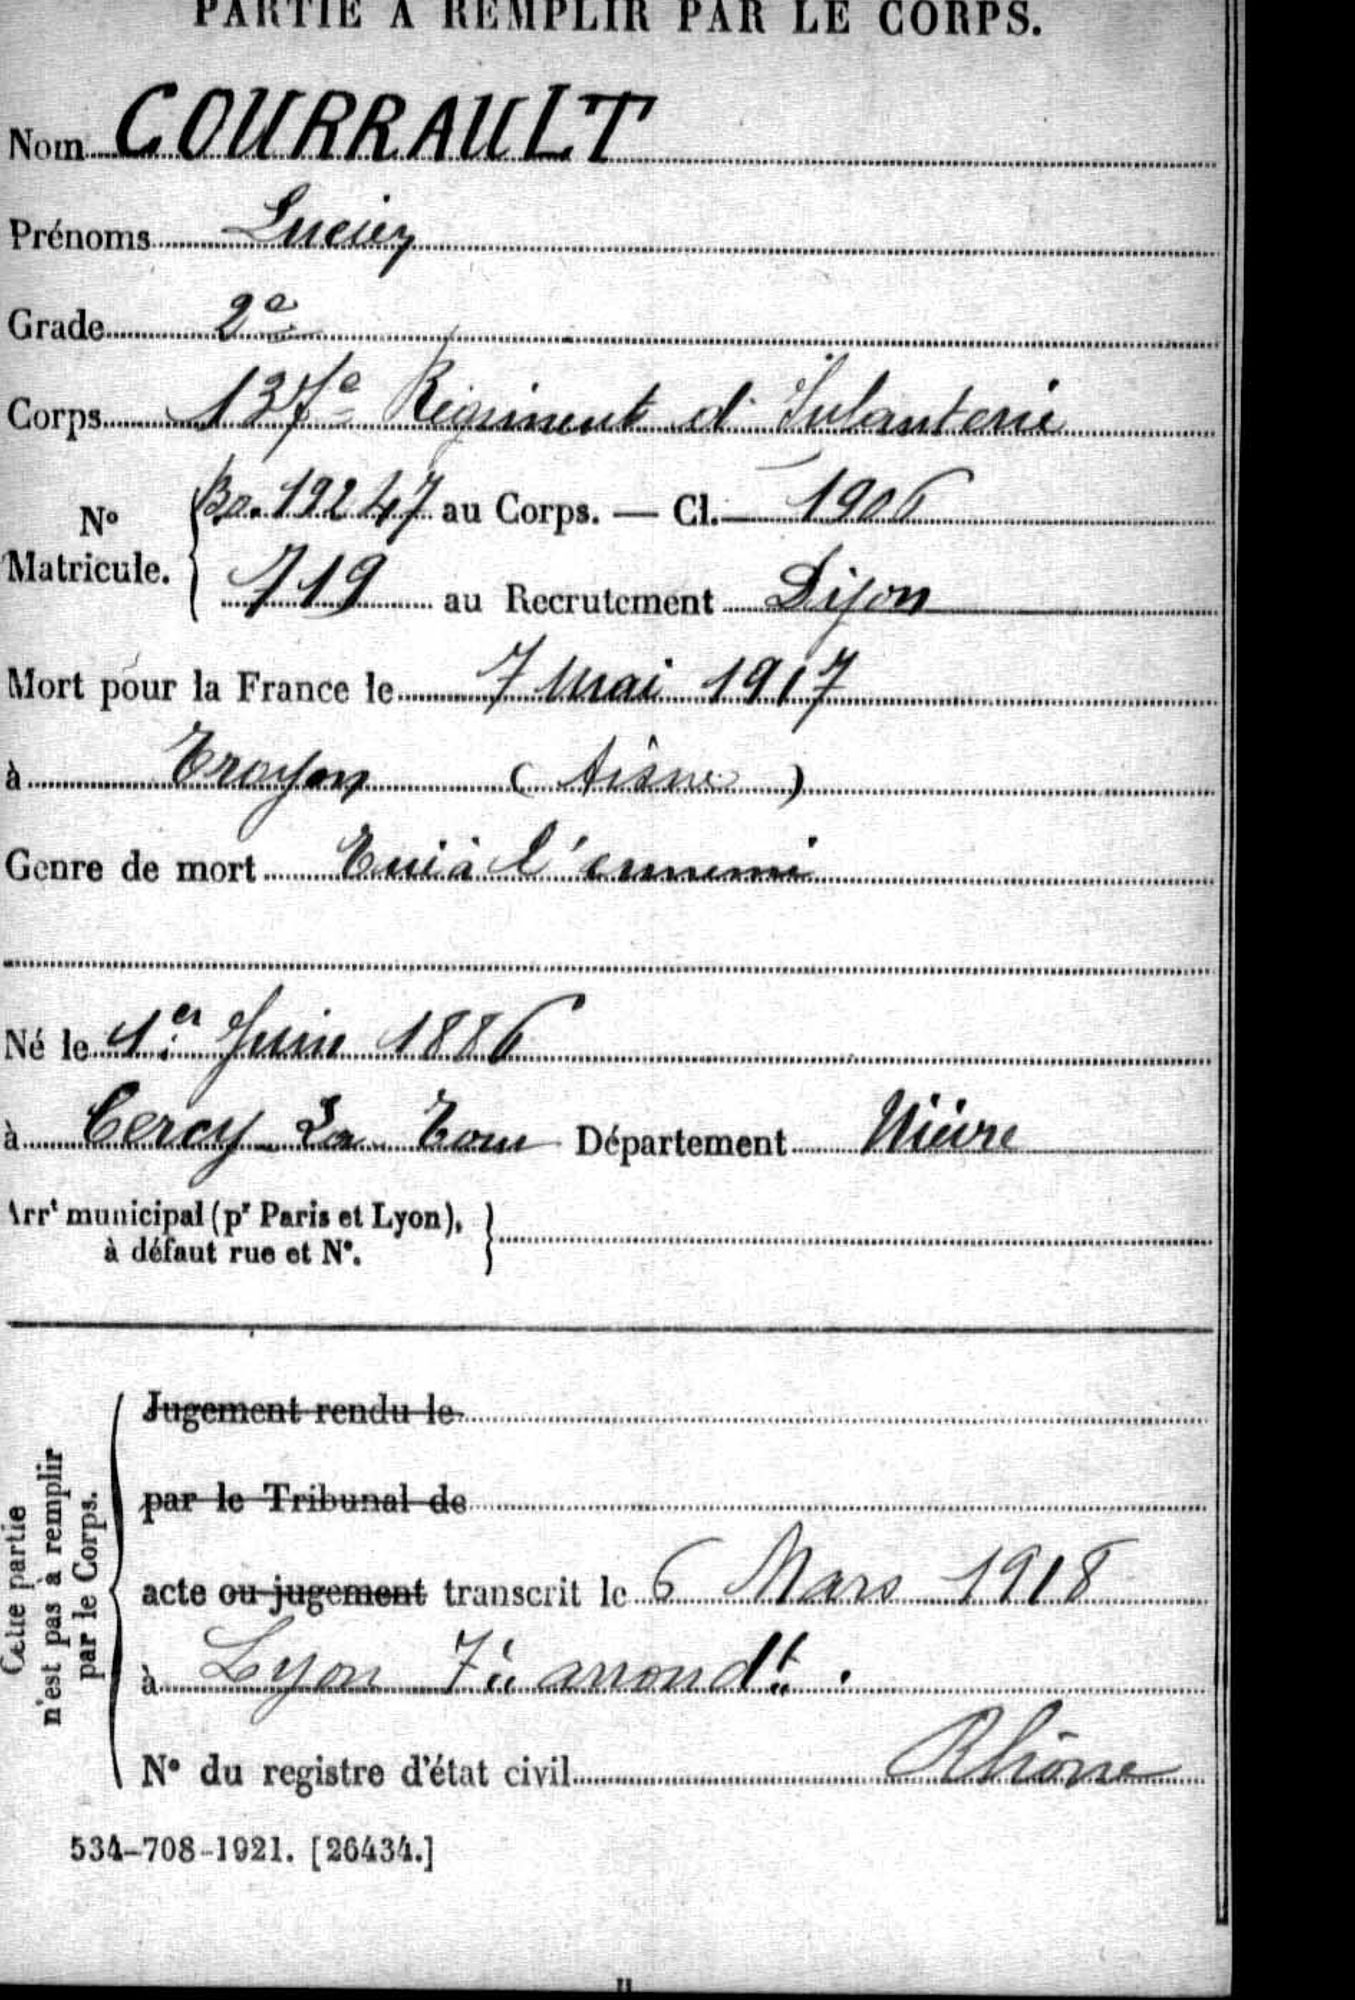 PARTIE A REMPLIR PAR LE CORPS.
Nom COURRAULT
Prénoms Lucien
Grade 2e
Corps 137e Régiment d'Infanterie
N° Matricule. { Bo. 19247 au Corps. — Cl. 1906
719 au Recrutement Dijon
Mort pour la France le 7 Mai 1917
à Troyon (Aisne)
Genre de mort Tué à l'ennemi
Né le 1er Juin 1886
à Cercy La Tour Département Nièvre
Arrt municipal (pr Paris et Lyon), à défaut rue et N°. }
Cette partie n'est pas à remplir par le Corps. {
Jugement rendu le
par le Tribunal de
acte ou jugement transcrit le 6 Mars 1918
à Lyon 7è arrondt.
N° du registre d'état civil Rhône
534-708-1921. [26434.]